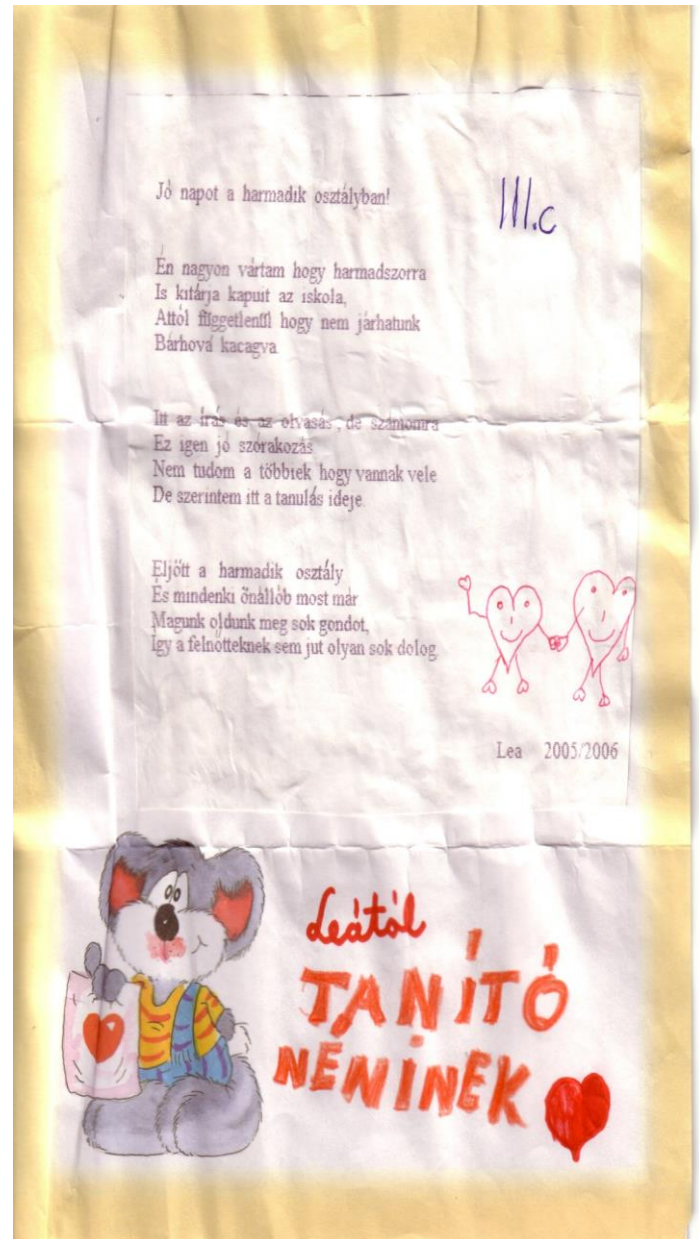 Jó napot a harmadik osztályban!
III.c
Én nagyon vártam hogy harmadszorra
Is kitárja kapuit az iskola,
Attól függetlenül hogy nem járhatunk
Bárhová kacagva.
Itt az írás és az olvasás , de számomra
Ez igen jó szórakozás
Nem tudom a többiek hogy vannak vele
De szerintem itt a tanulás ideje.
Eljött a harmadik osztály
És mindenki önállób most már
Magunk oldunk meg sok gondot,
Így a felnőtteknek sem jut olyan sok dolog.
Lea 2005/2006
Leától
TANÍTÓ
NÉNINEK